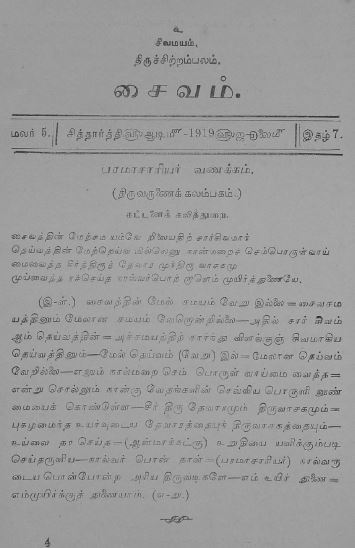 உ
சிவமயம்,
திருச்சிற்றம்பலம்,
சைவம்.
மலர் 5. சித்தார்த்தி௵ ஆடி௴ -1919௵ ஜூலை௴ இதழ் 7.
பரமாசாரியர் வணக்கம்,
(திருவருணைக் கலம்பகம்.)
கட்டளைக் கலித்துறை.
சைவத்தின் மேற்சம யம்வே றிலையதிற் சார்சிவமாந்
தெய்வத்தின் மேற்தெய்வ மில்லெனு நான்மறைச் செம்பொருள்வாய்
மைவைத்த சீர்த்திருத் தேவார முந்திரு வாசகமு
முய்வைத் தரச்செய்த நால்வர்பொற் றாளெம் முயிர்த்துணையே.
(இ-ள்.) சைவத்தின் மேல் சமயம் வேறு இல்லை=சைவசம
யத்தினும் மேலான சமயம் வேறொன்றில்லை—அதில் சார் சிவம்
ஆம் தெய்வத்தின்=அச்சமயத்திற் சார்ந்து விளங்குஞ் சிவமாகிய
தெய்வத்தினும்—மேல் தெய்வம் (வேறு) இல்=மேலான தெய்வம்
வேறில்லை—எனும் நால்மறை செம் பொருள் வாய்மை வைத்த=
என்று சொல்லும் நான்கு வேதங்களின் செவ்விய பொருளி னுண்
மையைக் கொண்டுள்ள—சீர் திரு தேவாரமும் திருவாசகமும்=
புகழமைந்த உயர்வுடைய தேவாரத்தையுந் திருவாசகத்தையும்—
உய்வை தர செய்த=(ஆன்மாக்கட்கு) உறுதியை யளிக்கும்படி
செய்தருளிய—நால்வர் பொன் தாள்=(பரமாசாரியர்) நால்வரு
டைய பொன்போன்ற அரிய திருவடிகளே—எம் உயிர் துணை=
எம்முயிர்க்குத் துணையாம். (எ-று.)